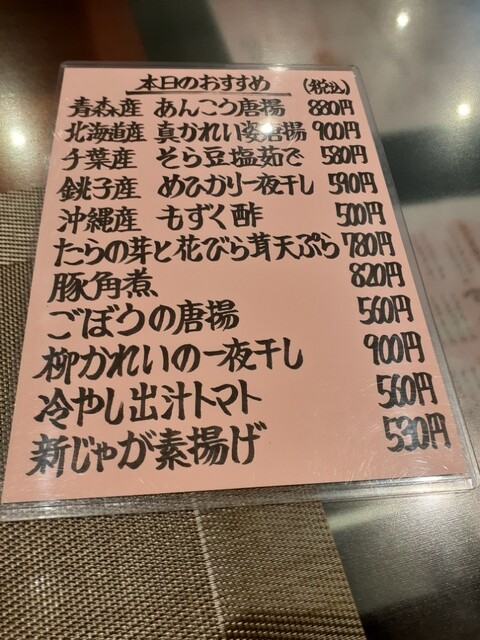 本日のおすすめ (税込)
青森産 あんこう唐揚 880円
北海道産 真かれい姿唐揚 900円
千葉産 そら豆塩茹で 580円
銚子産 めひかり一夜干し 590円
沖縄産 もずく酢 500円
たらの芽と花びら茸天ぷら 780円
豚角煮 820円
ごぼうの唐揚 560円
柳かれいの一夜干し 900円
冷やし出汁トマト 560円
新じゃが素揚げ 530円